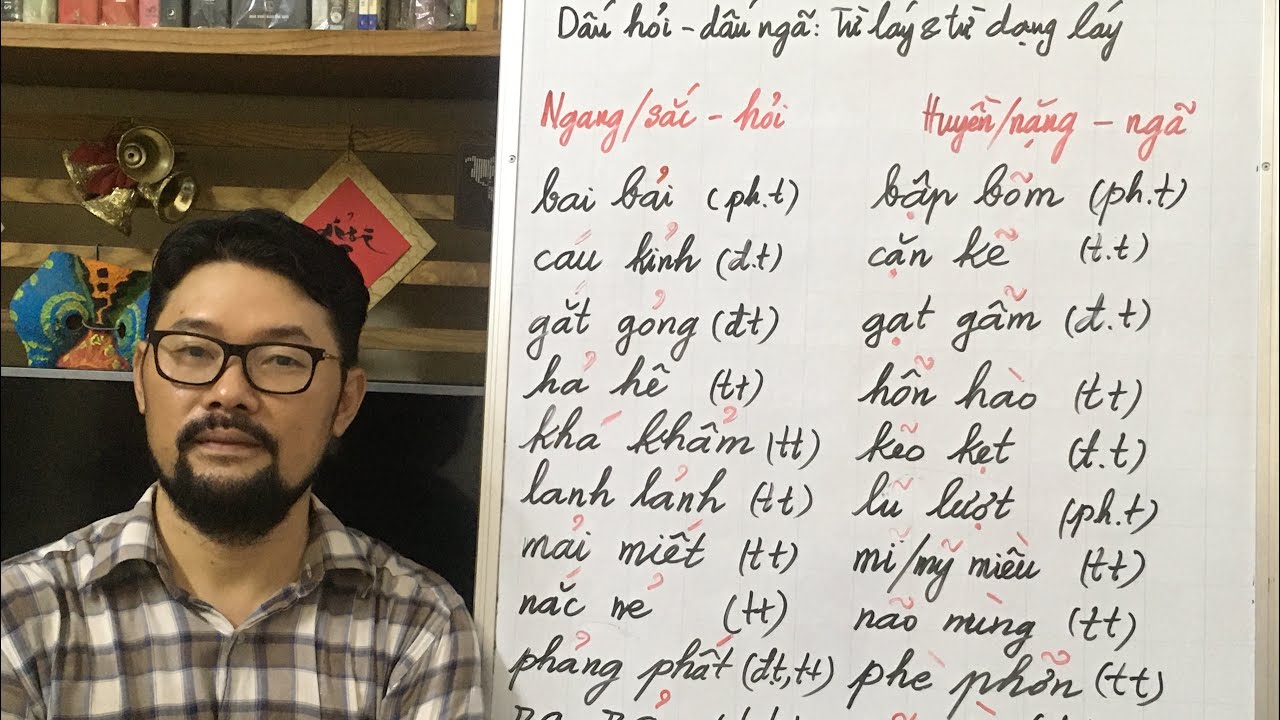 Dấu hỏi - dấu ngã: Từ láy & từ dạng láy
Ngang/sắc - hỏi
Huyền/nặng - ngã
bai bải (ph.t)
bập bõm (ph.t)
cáu kỉnh (đ.t)
cặn kẽ (t.t)
gắt gỏng (đt)
gạt gẫm (đ.t)
hả hê (tt)
hỗn hào (tt)
khá khẩm (tt)
kẽo kẹt (đ.t)
lanh lảnh (tt)
lũ lượt (ph.t)
mải miết (tt)
mĩ/mỹ miều (tt)
nắc nẻ (tt)
não nùng (tt)
phảng phất (đt, tt)
phè phỡn (tt)